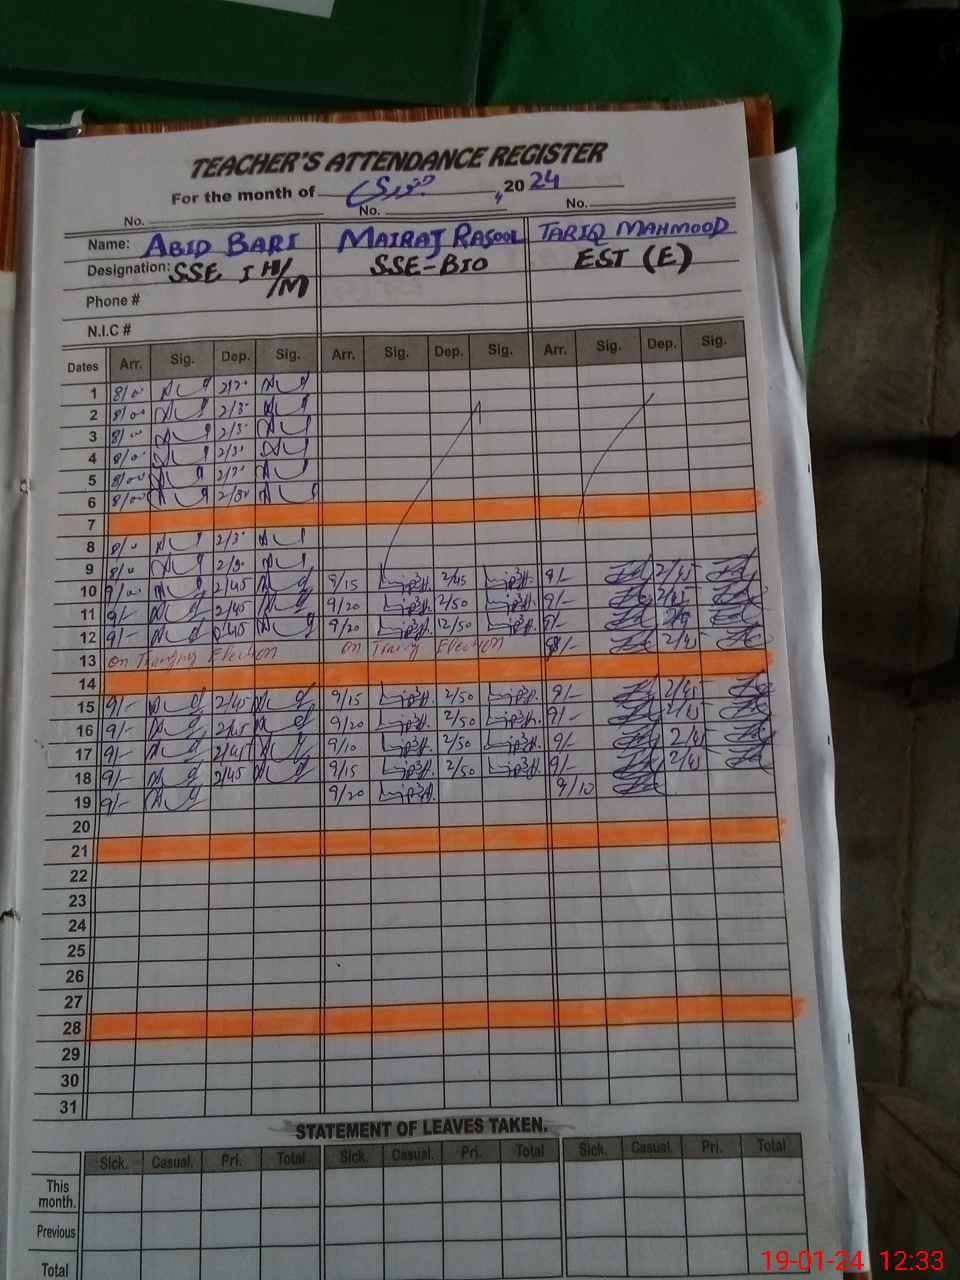 TEACHER'S ATTENDANCE REGISTER
For the month of جنوری, 2024
No. No. No.
Name: ABID BARI MAIRAJ RASOOL TARIQ MAHMOOD
Designation: SSE I H/M SSE-BIO EST (E)
Phone #
N.I.C #
Dates Arr. Sig. Dep. Sig. Arr. Sig. Dep. Sig. Arr. Sig. Dep. Sig.
1 8/00
2 8/00 2/3
3 8/00 2/3
4 8/00 2/3
5 8/00 2/3
6 8/00 2/30
7
8 8/0 2/3
9 8/0
10 9/00 2/45 9/15 2/45 9/- 2/45
11 9/- 2/45 9/20 2/50 9/- 2/45
12 9/- 2/45 9/20 12/50 9/-
13 on Election on Election 8/- 2/45
14
15 9/- 2/45 9/15 2/50 9/- 2/45
16 9/- 2/45 9/20 2/50 9/- 2/45
17 9/- 2/45 9/10 2/50 9/- 2/45
18 9/- 2/45 9/15 2/50 9/- 2/45
19 9/- 9/20 9/10
20
21
22
23
24
25
26
27
28
29
30
31
STATEMENT OF LEAVES TAKEN.
Sick. Casual. Pri. Total Sick. Casual. Pri. Total Sick. Casual. Pri. Total
This month.
Previous
Total
19-01-24 12:33